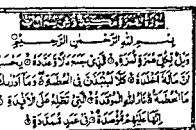 بِسْمِ اللهِ الرَّحْمٰنِ الرَّحِيْمِ
وَيْلٌ لِّكُلِّ هُمَزَةٍ لُّمَزَةٍ ۝ الَّذِيْ جَمَعَ مَالًا وَّعَدَّدَهٗ ۝ يَحْسَبُ
اَنَّ مَالَهٗ اَخْلَدَهٗ ۝ كَلَّا لَيُنْبَذَنَّ فِي الْحُطَمَةِ ۝ وَمَا اَدْرٰىكَ
مَا الْحُطَمَةُ ۝ نَارُ اللهِ الْمُوْقَدَةُ ۝ الَّتِيْ تَطَّلِعُ عَلَى الْاَفْئِدَةِ ۝
اِنَّهَا عَلَيْهِمْ مُّؤْصَدَةٌ ۝ فِيْ عَمَدٍ مُّمَدَّدَةٍ ۝